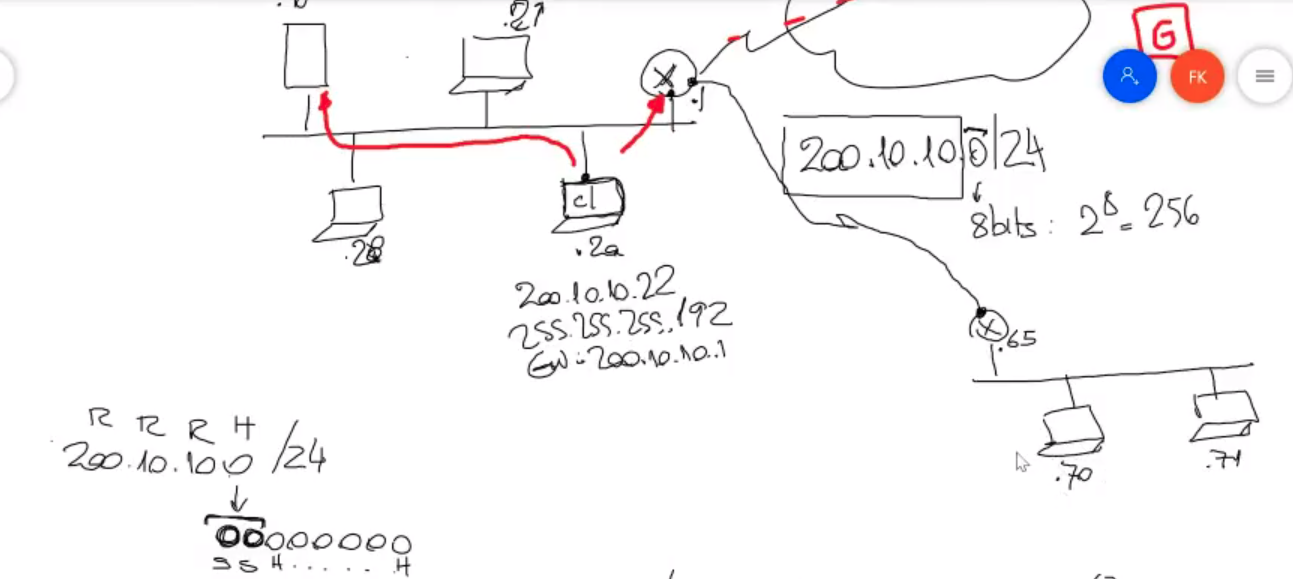 G
FK
.1
200.10.10.0/24
8bits: 2^8 = 256
cl
.28
.2a
200.10.10.22
255.255.255.192
GW: 200.10.10.1
.65
.70
.71
R R R H
200.10.10 0 /24
00000000
S S H . . . . . H